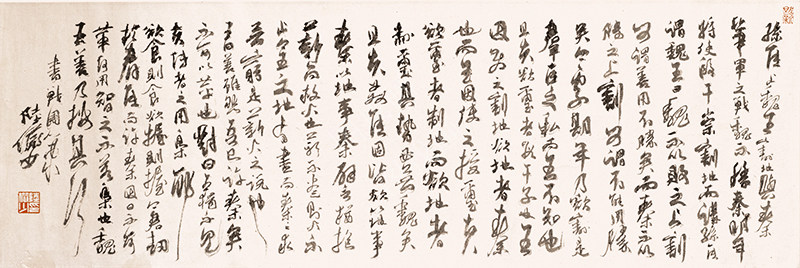 孫臣止魏王割地與秦
華軍之戰魏不勝秦明年
將使段干崇割地而講孫臣
謂魏王曰魏不以敗之上割
可謂善用不勝矣而秦不以
勝之上割可謂不能用勝
矣今處期年乃欲割是
群臣之私而王不知也
且夫欲璽者段干子也王
因使之割地欲地者秦
也而王因使之授璽夫
欲璽者制地而欲地者
制璽其勢必無魏矣
且夫奸臣固皆欲以地事
秦以地事秦譬猶抱
薪而救火也薪不盡則火不
止今王之地有盡而秦之求
無窮是薪火之說也魏
王曰善雖然吾已許秦矣
不可以革也對曰王獨不見
夫博者之用梟邪
欲食則食欲握則握今君劫
於群臣而許秦因曰不可
革何用智之不若梟也魏
王曰善乃按其行
書戰國
陸儼少